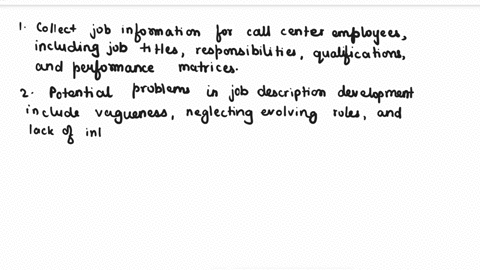 1. Collect job information for call center employees,
including job titles, responsibilities, qualifications,
and performance matrices.
2. Potential problems in job description development
include vagueness, neglecting evolving roles, and
lack of inl